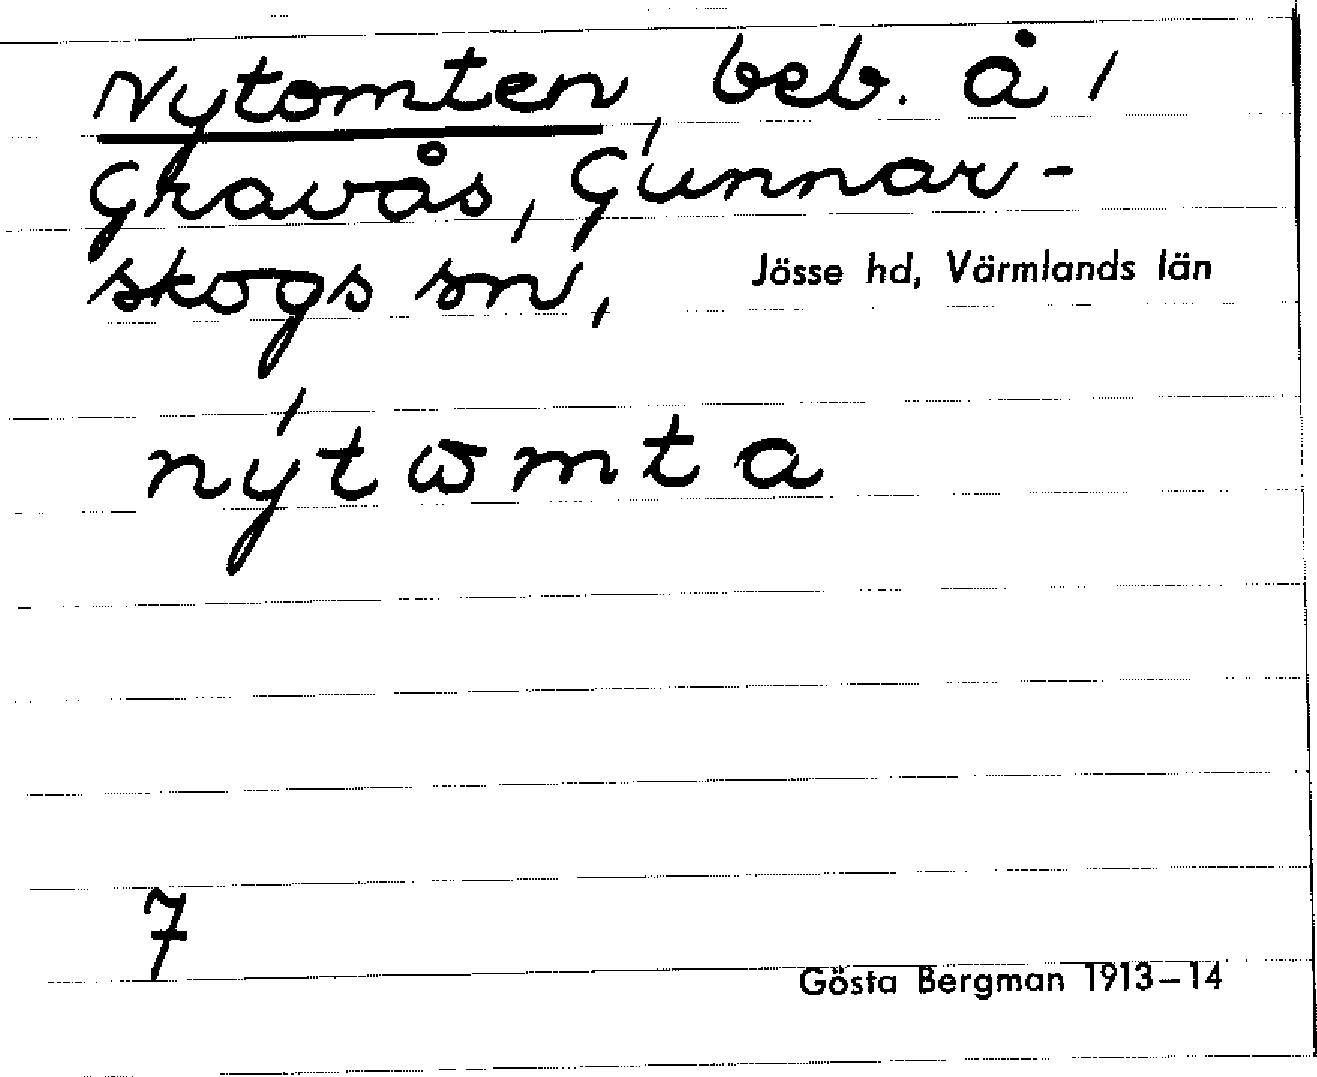 Nytomten, beb. å 1
Gravås, Gunnar-
skogs sn,
Jösse hd, Värmlands län
nýtωmta
7
Gösta Bergman 1913–14